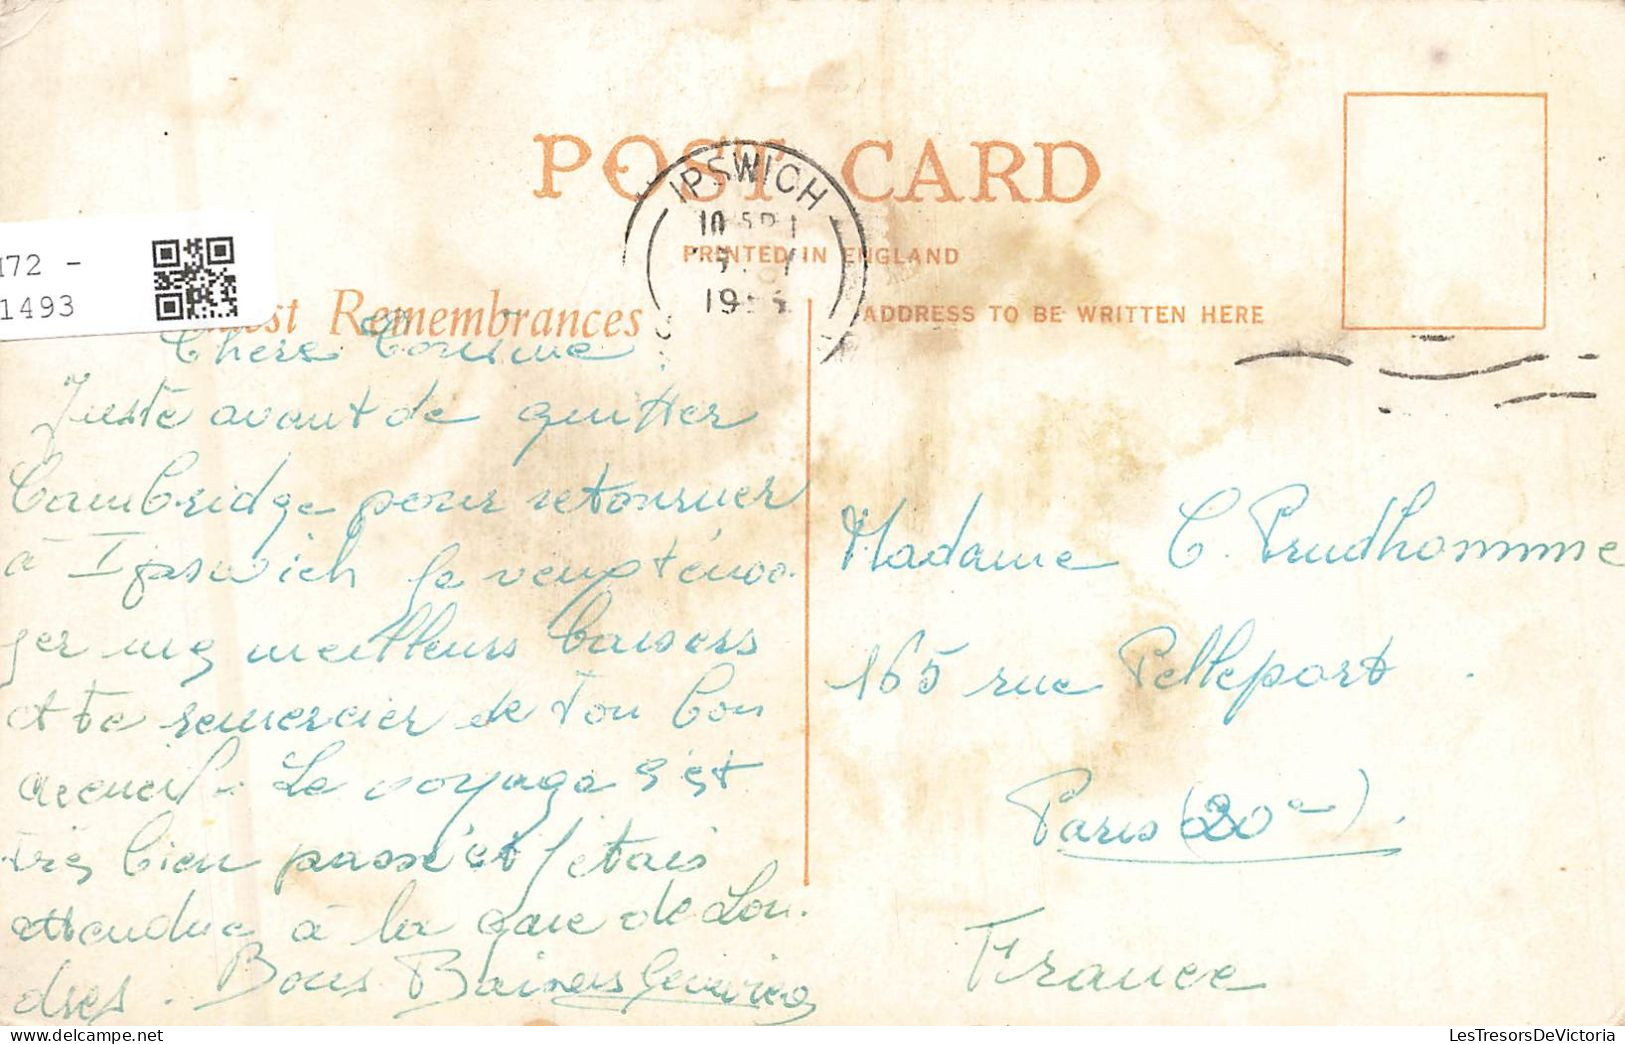 POST CARD
PRINTED IN ENGLAND
IPSWICH
172 -
1493
Remembrances
ADDRESS TO BE WRITTEN HERE
Chère Cousine
Juste avant de quitter
Cambridge pour retourner
à Ipswich je veux t'envo-
yer mes meilleurs baisers
et te remercier de ton bon
accueil - Le voyage s'est
très bien passé et j'étais
attendue à la gare de Lon-
dres. Bons Baisers Geneviève
Madame C. Prudhomme
165 rue Pelleport
Paris (20e).
France
LesTresorsDeVictoria.com